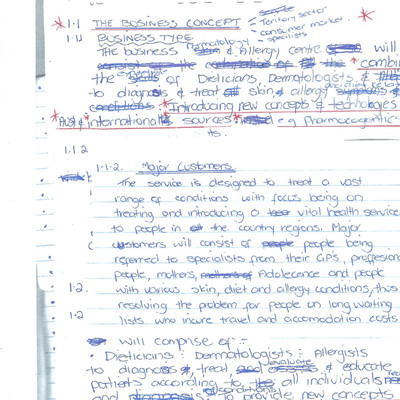 1.1 THE BUSINESS CONCEPT - Service
- Tertiary sector
- consumer market.
- specialists
1.1.1 BUSINESS TYPE
Dermatology
The business & Allergy centre will
combin
the expertise of Dieticians, Dermatologists &
to diagnosis & treat skin & allergy
conditions: Introducing new concepts & technologies
Aust & international sources e.g
ts.
1.1.2
1.1.2. Major Customers.
The service is designed to treat a vast
range of conditions with focus being on
treating and introducing a vital health service
to people in the country regions. Major
customers will consist of people being
referred to specialists from their GPs, proffesional
people, mothers, Adolecence and people
1.2. with various skin, diet and allergy conditions, thus
resolving the problem for people on long waiting
1.2 lists who incure travel and accomodation costs
will comprise of :-
• Dieticians : Dermatologists : Allergists
evaluate
to diagnosis, treat, & educate
patients according to all individuals needs
conditions
and to provide new concepts